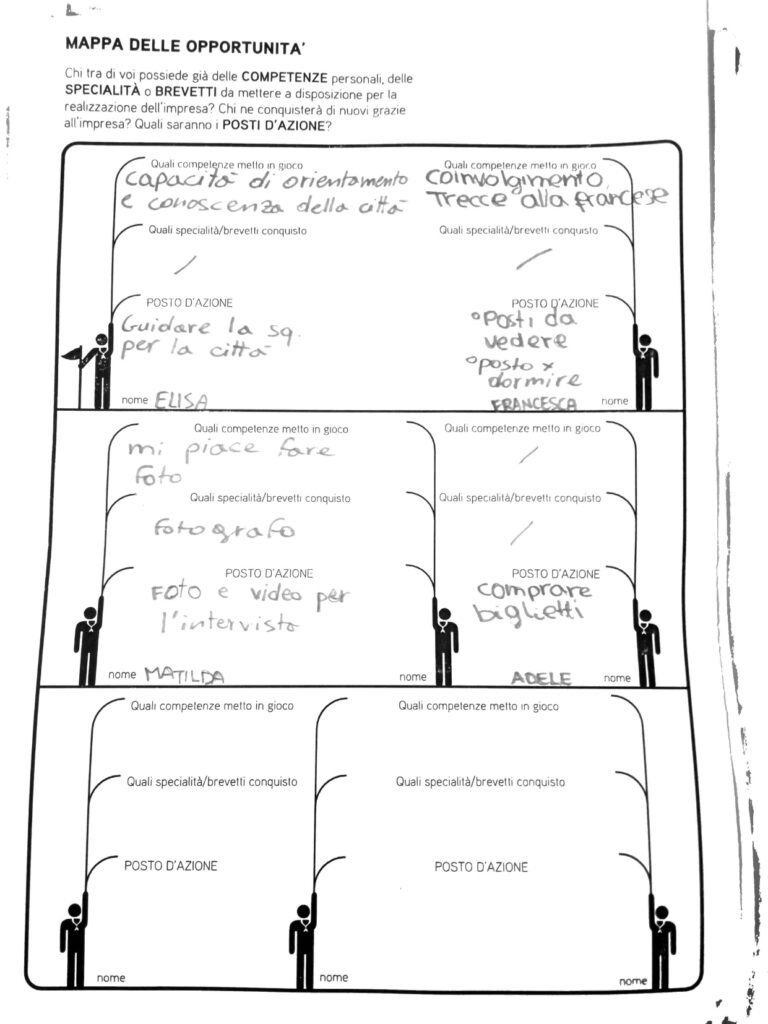 MAPPA DELLE OPPORTUNITA'
Chi tra di voi possiede già delle COMPETENZE personali, delle
SPECIALITÀ o BREVETTI da mettere a disposizione per la
realizzazione dell'impresa? Chi ne conquisterà di nuovi grazie
all'impresa? Quali saranno i POSTI D'AZIONE?
Quali competenze metto in gioco
capacità di orientamento
e conoscenza della città
Quali specialità/brevetti conquisto
/
POSTO D'AZIONE
Guidare la sq.
per la città
nome ELISA
Quali competenze metto in gioco
coinvolgimento,
Trecce alla francese
Quali specialità/brevetti conquisto
/
POSTO D'AZIONE
° Posti da
vedere
° posto x
dormire
FRANCESCA nome
Quali competenze metto in gioco
mi piace fare
foto
Quali specialità/brevetti conquisto
fotografo
POSTO D'AZIONE
FOTO e video per
l'intervista
nome MATILDA
nome
Quali competenze metto in gioco
/
Quali specialità/brevetti conquisto
/
POSTO D'AZIONE
comprare
biglietti
ADELE nome
Quali competenze metto in gioco
Quali specialità/brevetti conquisto
POSTO D'AZIONE
nome
Quali competenze metto in gioco
Quali specialità/brevetti conquisto
POSTO D'AZIONE
nome
nome